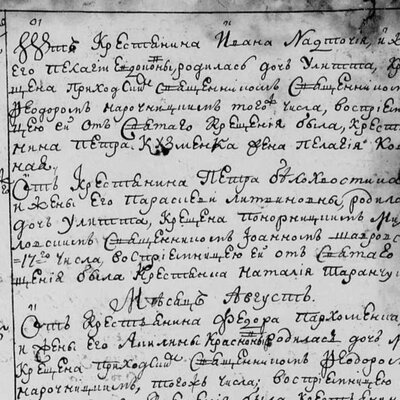 Отъ Крестьянина Йвана Надточія, и ж
Его Пекагеи Евдоновны, родилась дочь Улитта, кр
щена приходскимъ Священникомъ Священником
Ѳеодоромъ нарочницкимъ тогожъ числа, воспріем
щею ей отъ Святаго Крещенія была, крест
нина Петра Кузменка жена Пелагія Ко
ная.
Отъ Крестьянина Петра Бѣлохвостика
и жены его Параскеви Литвиновны, родила
дочь Улитта, Крещена Понорницкимъ Ми
Священникомъ Іоанномъ
=17го числа, воспріемницею ей отъ Святаго
щенія была Крестьянка Наталія Таранчу
Мѣсяцъ Августъ.
Отъ Крестьянина Ѳедора Пархоменка
и жены его Акилины родилась дочь М
Крещена приходскимъ Священникомъ Ѳеодоро
нарочницкимъ, тогожъ числа; воспріемницею
была